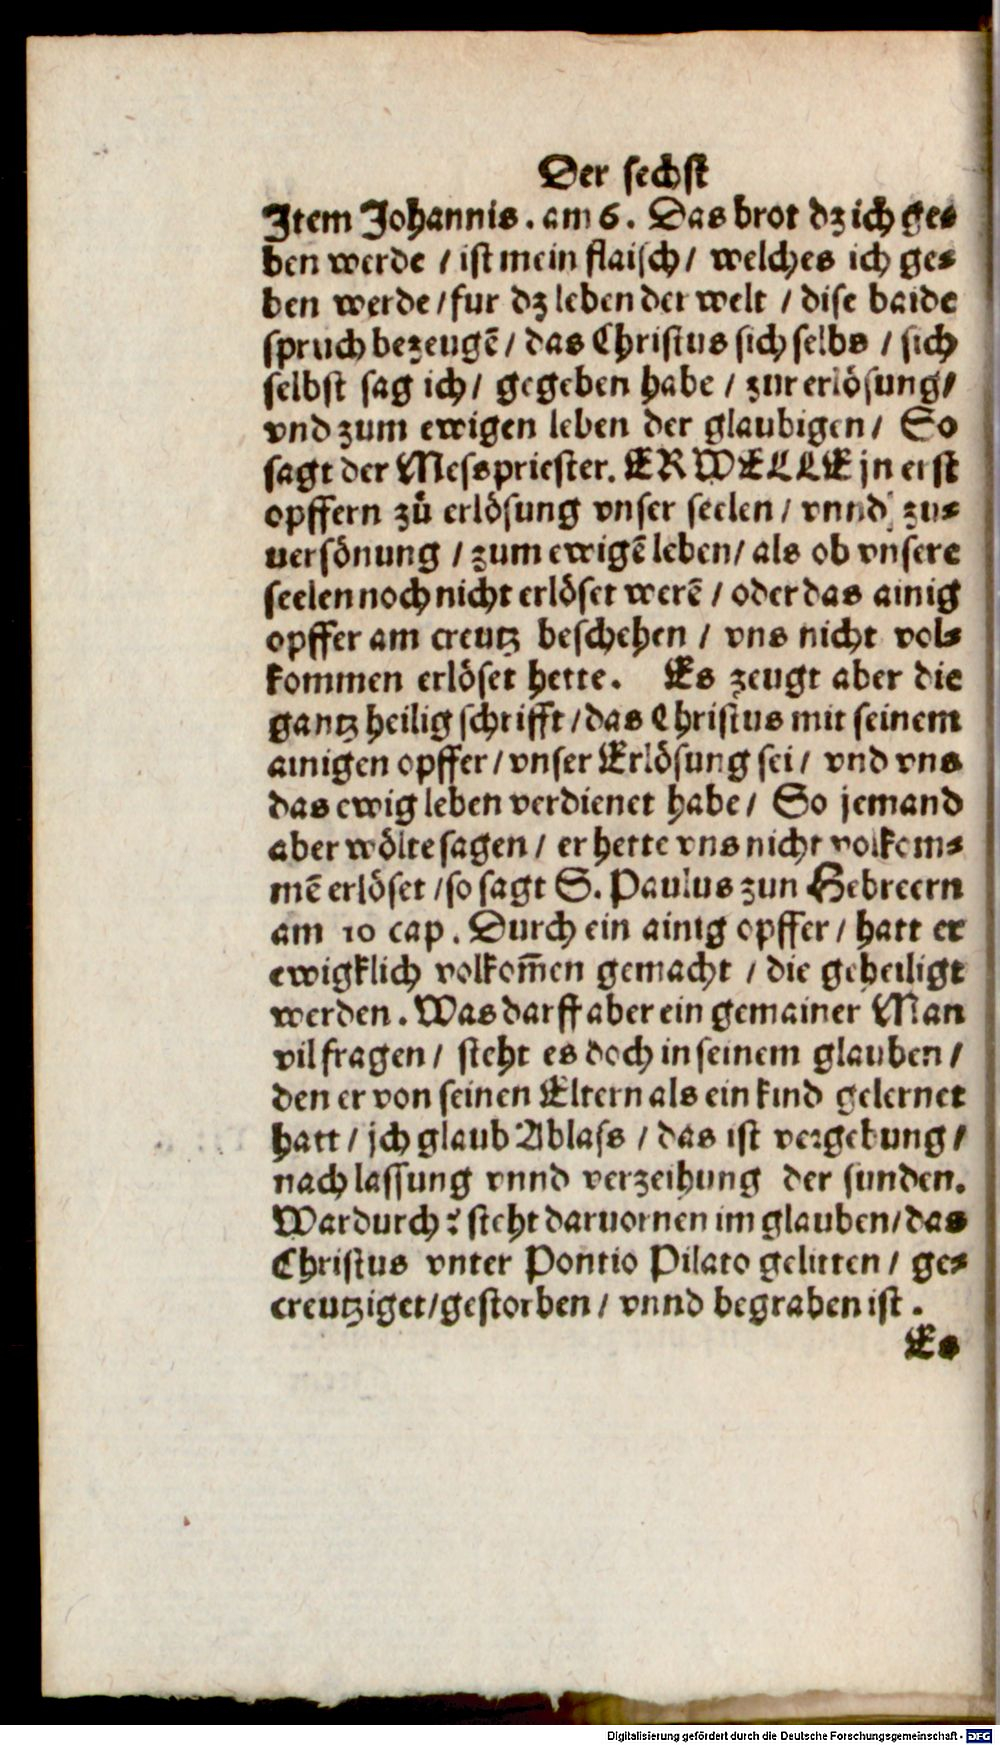 Der sechst
Item Johannis. am 6. Das brot dz ich ge⸗
ben werde / ist mein flaisch / welches ich ge⸗
ben werde / fur dz leben der welt / dise baide
spruch bezeugẽ / das Christus sich selbs / sich
selbst sag ich / gegeben habe / zur erlösung /
vnd zum ewigen leben der glaubigen / So
sagt der Messpriester. ER WELLE jn erst
opffern zů erlösung vnser seelen / vnnd zu⸗
uersönung / zum ewigẽ leben / als ob vnsere
seelen noch nicht erlöset werẽ / oder das ainig
opffer am creutz beschehen / vns nicht vol⸗
kommen erlöset hette. Es zeugt aber die
gantz heilig schrifft / das Christus mit seinem
ainigen opffer / vnser Erlösung sei / vnd vns
das ewig leben verdienet habe / So jemand
aber wölte sagen / er hette vns nicht volkom⸗
mẽ erlöset / so sagt S. Paulus zun Hebreern
am 10 cap. Durch ein ainig opffer / hatt er
ewigklich volkom̃en gemacht / die geheiligt
werden. Was darff aber ein gemainer Man
vil fragen / steht es doch in seinem glauben /
den er von seinen Eltern als ein kind gelernet
hatt / jch glaub Ablass / das ist vergebung /
nach lassung vnnd verzeihung der sunden.
Wardurch? steht daruornen im glauben / das
Christus vnter Pontio Pilato gelitten / ge⸗
creutziget / gestorben / vnnd begraben ist.
Es
Digitalisierung gefördert durch die Deutsche Forschungsgemeinschaft - DFG